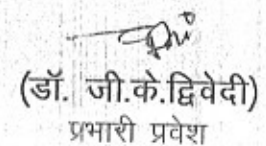 (डॉ. जी.के.द्विवेदी)
प्रभारी प्रवेश